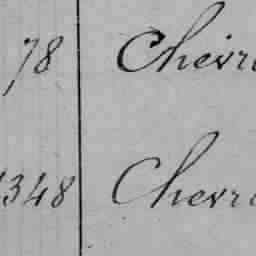 78 Chevr
1348 Chevr